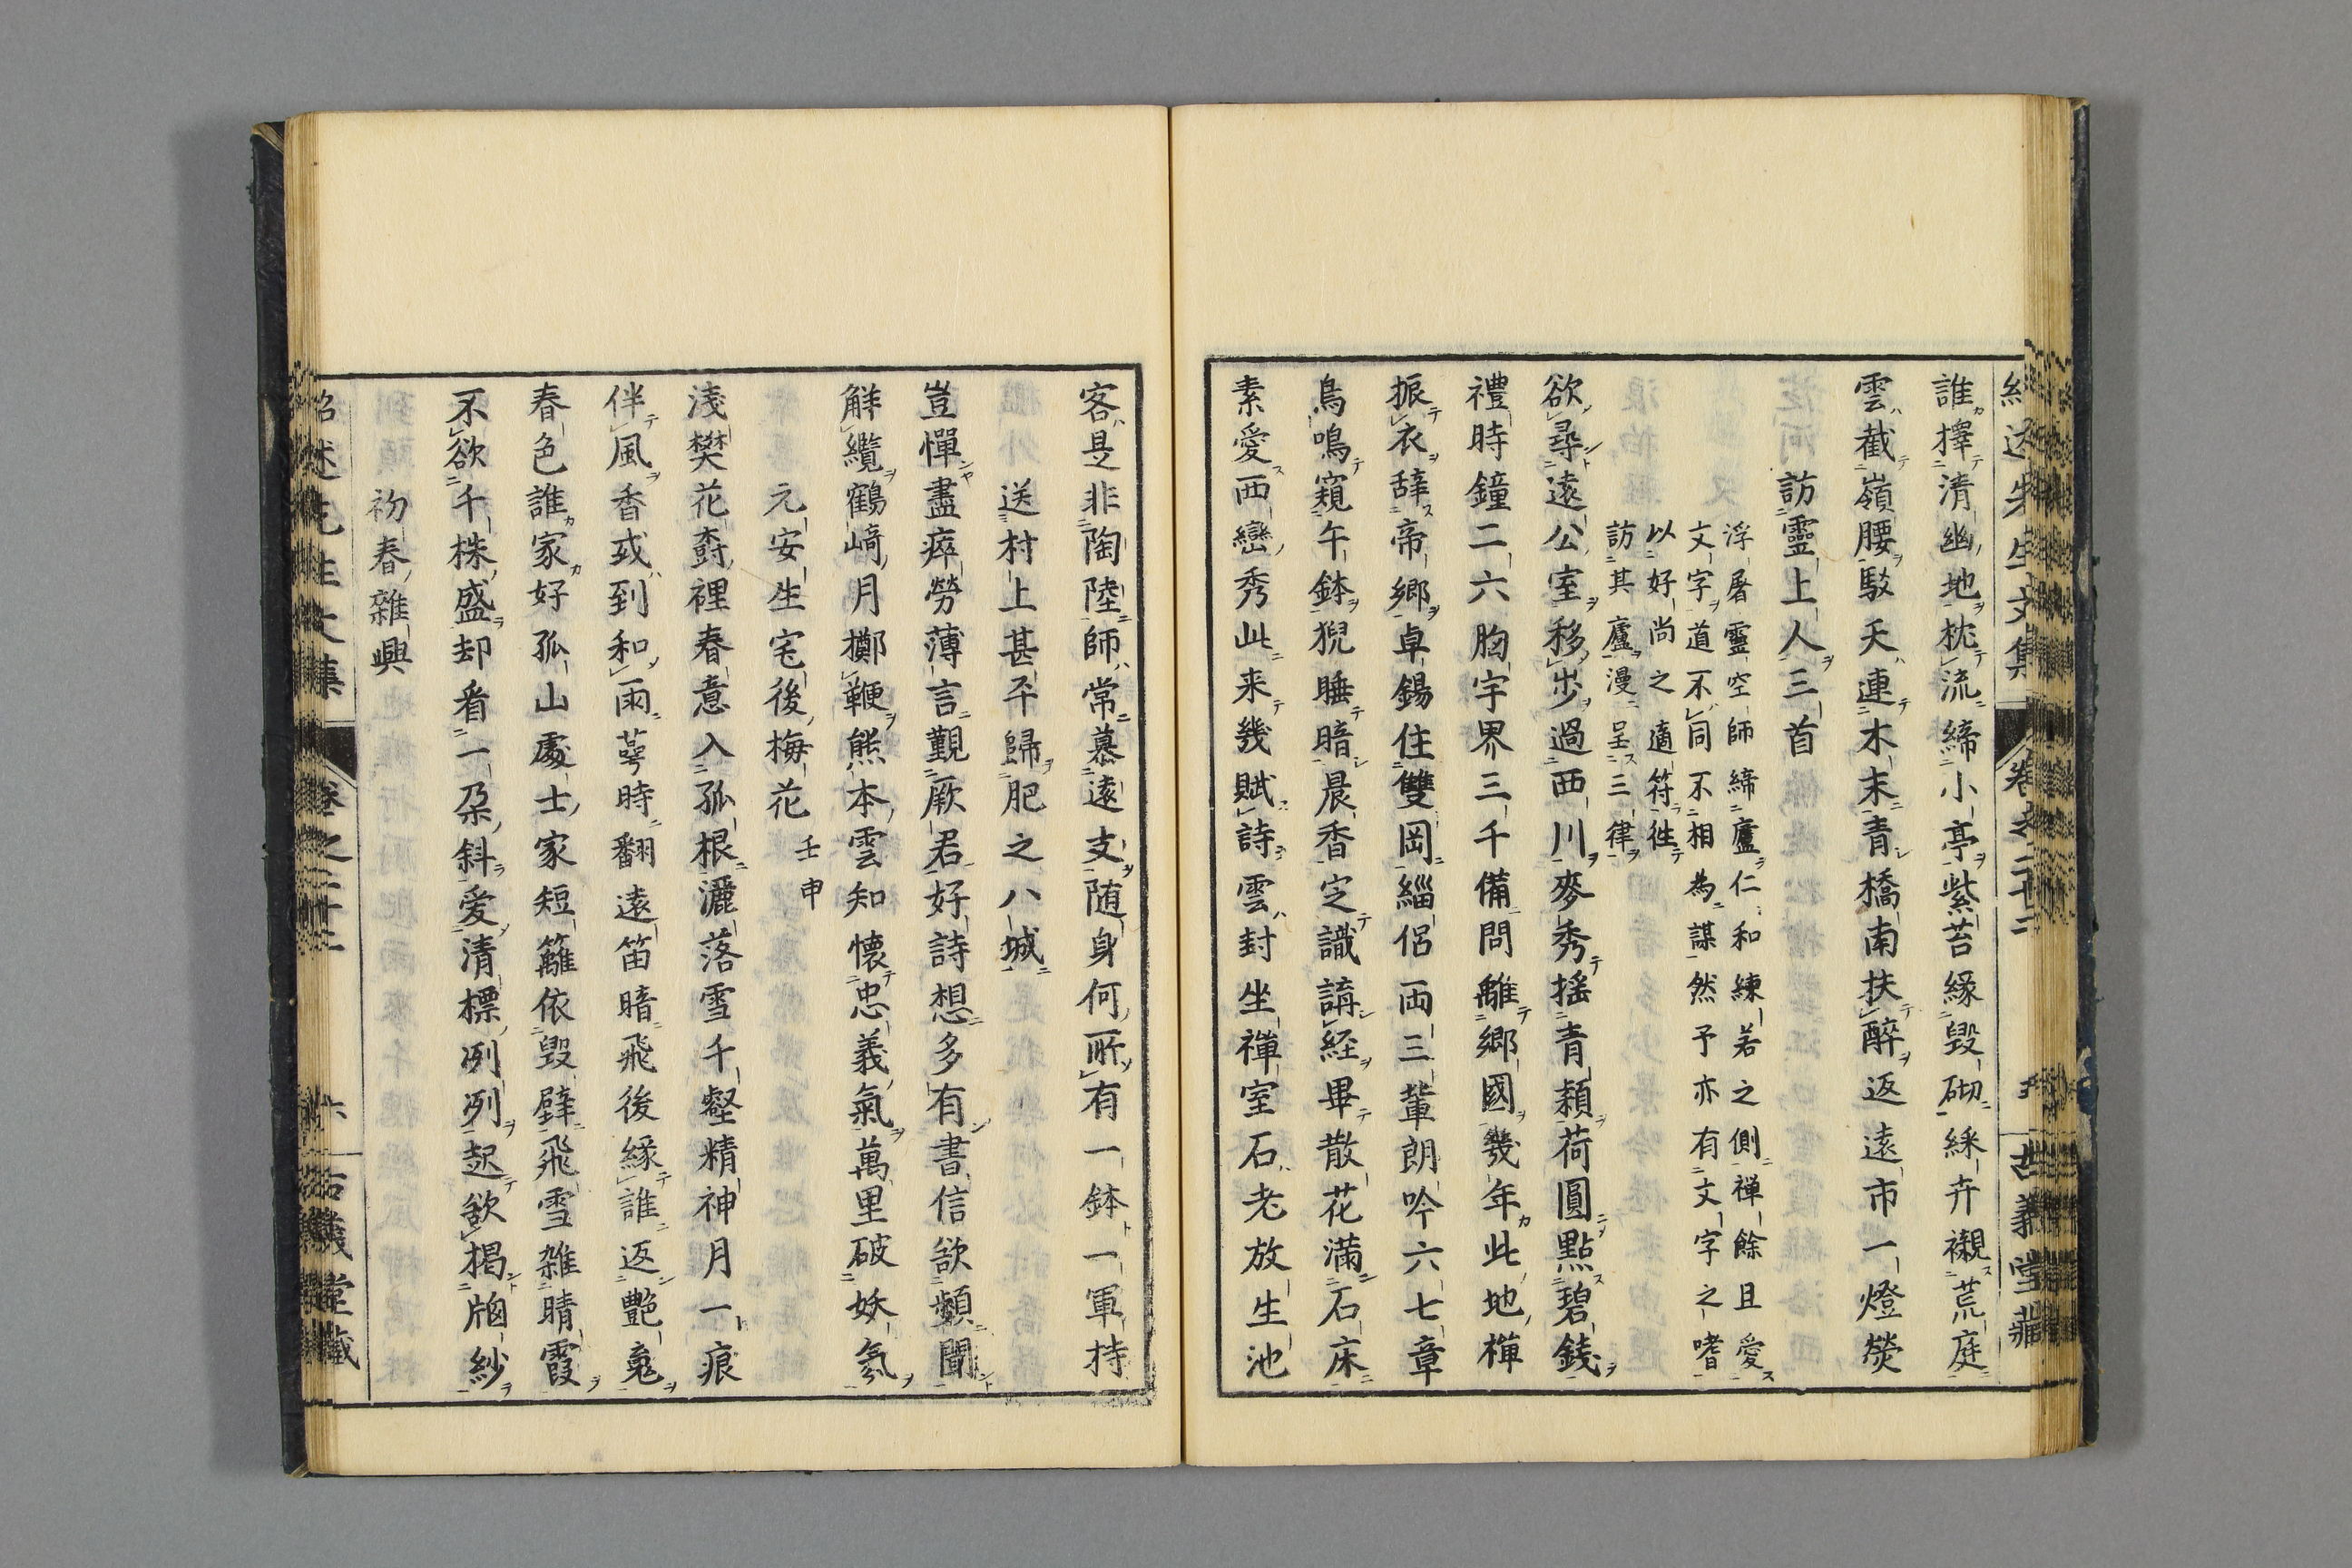 誰擇清幽地枕流締小亭紫苔緣毀砌綵卉襯荒庭
雲截嶺腰駁天連木末青橋南扶醉返遠市一燈熒
訪靈上人三首
浮屠靈空師締廬仁和練若之側禅餘且愛
文字道不同不相為謀然予亦有文字之嗜
以好尚之適符徃
訪其廬漫呈三律
欲尋遠公室移歩過西川麥秀揺青穎荷圓點碧錢
禮時鐘二六胸宇界三千備問離郷國幾年此地禅
振衣辞帝郷卓錫住雙岡緇侶両三輩朗吟六七章
鳥鳴窺午鉢猊睡暗晨香定識講経畢散花滿石床
素愛西巒秀此来幾賦詩雲封坐禅室石老放生池
客是非陶陸師常慕遠支随身何所有一鉢一軍持
送村上甚平歸肥之八城
豈憚盡瘁勞薄言覲厥君好詩想多有書信欲頻聞
解纜鶴﨑月擲鞭熊本雲知懐忠義氣萬里破妖氛
元安生宅後梅花 壬申
淺樊花㝡裡春意入孤根灑落雪千壑精神月一痕
伴風香或到和雨萼時翻遠笛暗飛後緣誰返艶䰟
春色誰家好孤山處士家短籬依毀壁飛雪雑晴霞
不欲千株盛却看一朶斜爱清標冽冽起欲掲牕紗
初春雜興
紹述先生文集 卷之二十二 古義堂藏
紹述先生文集 卷之二十二 六 古義堂藏